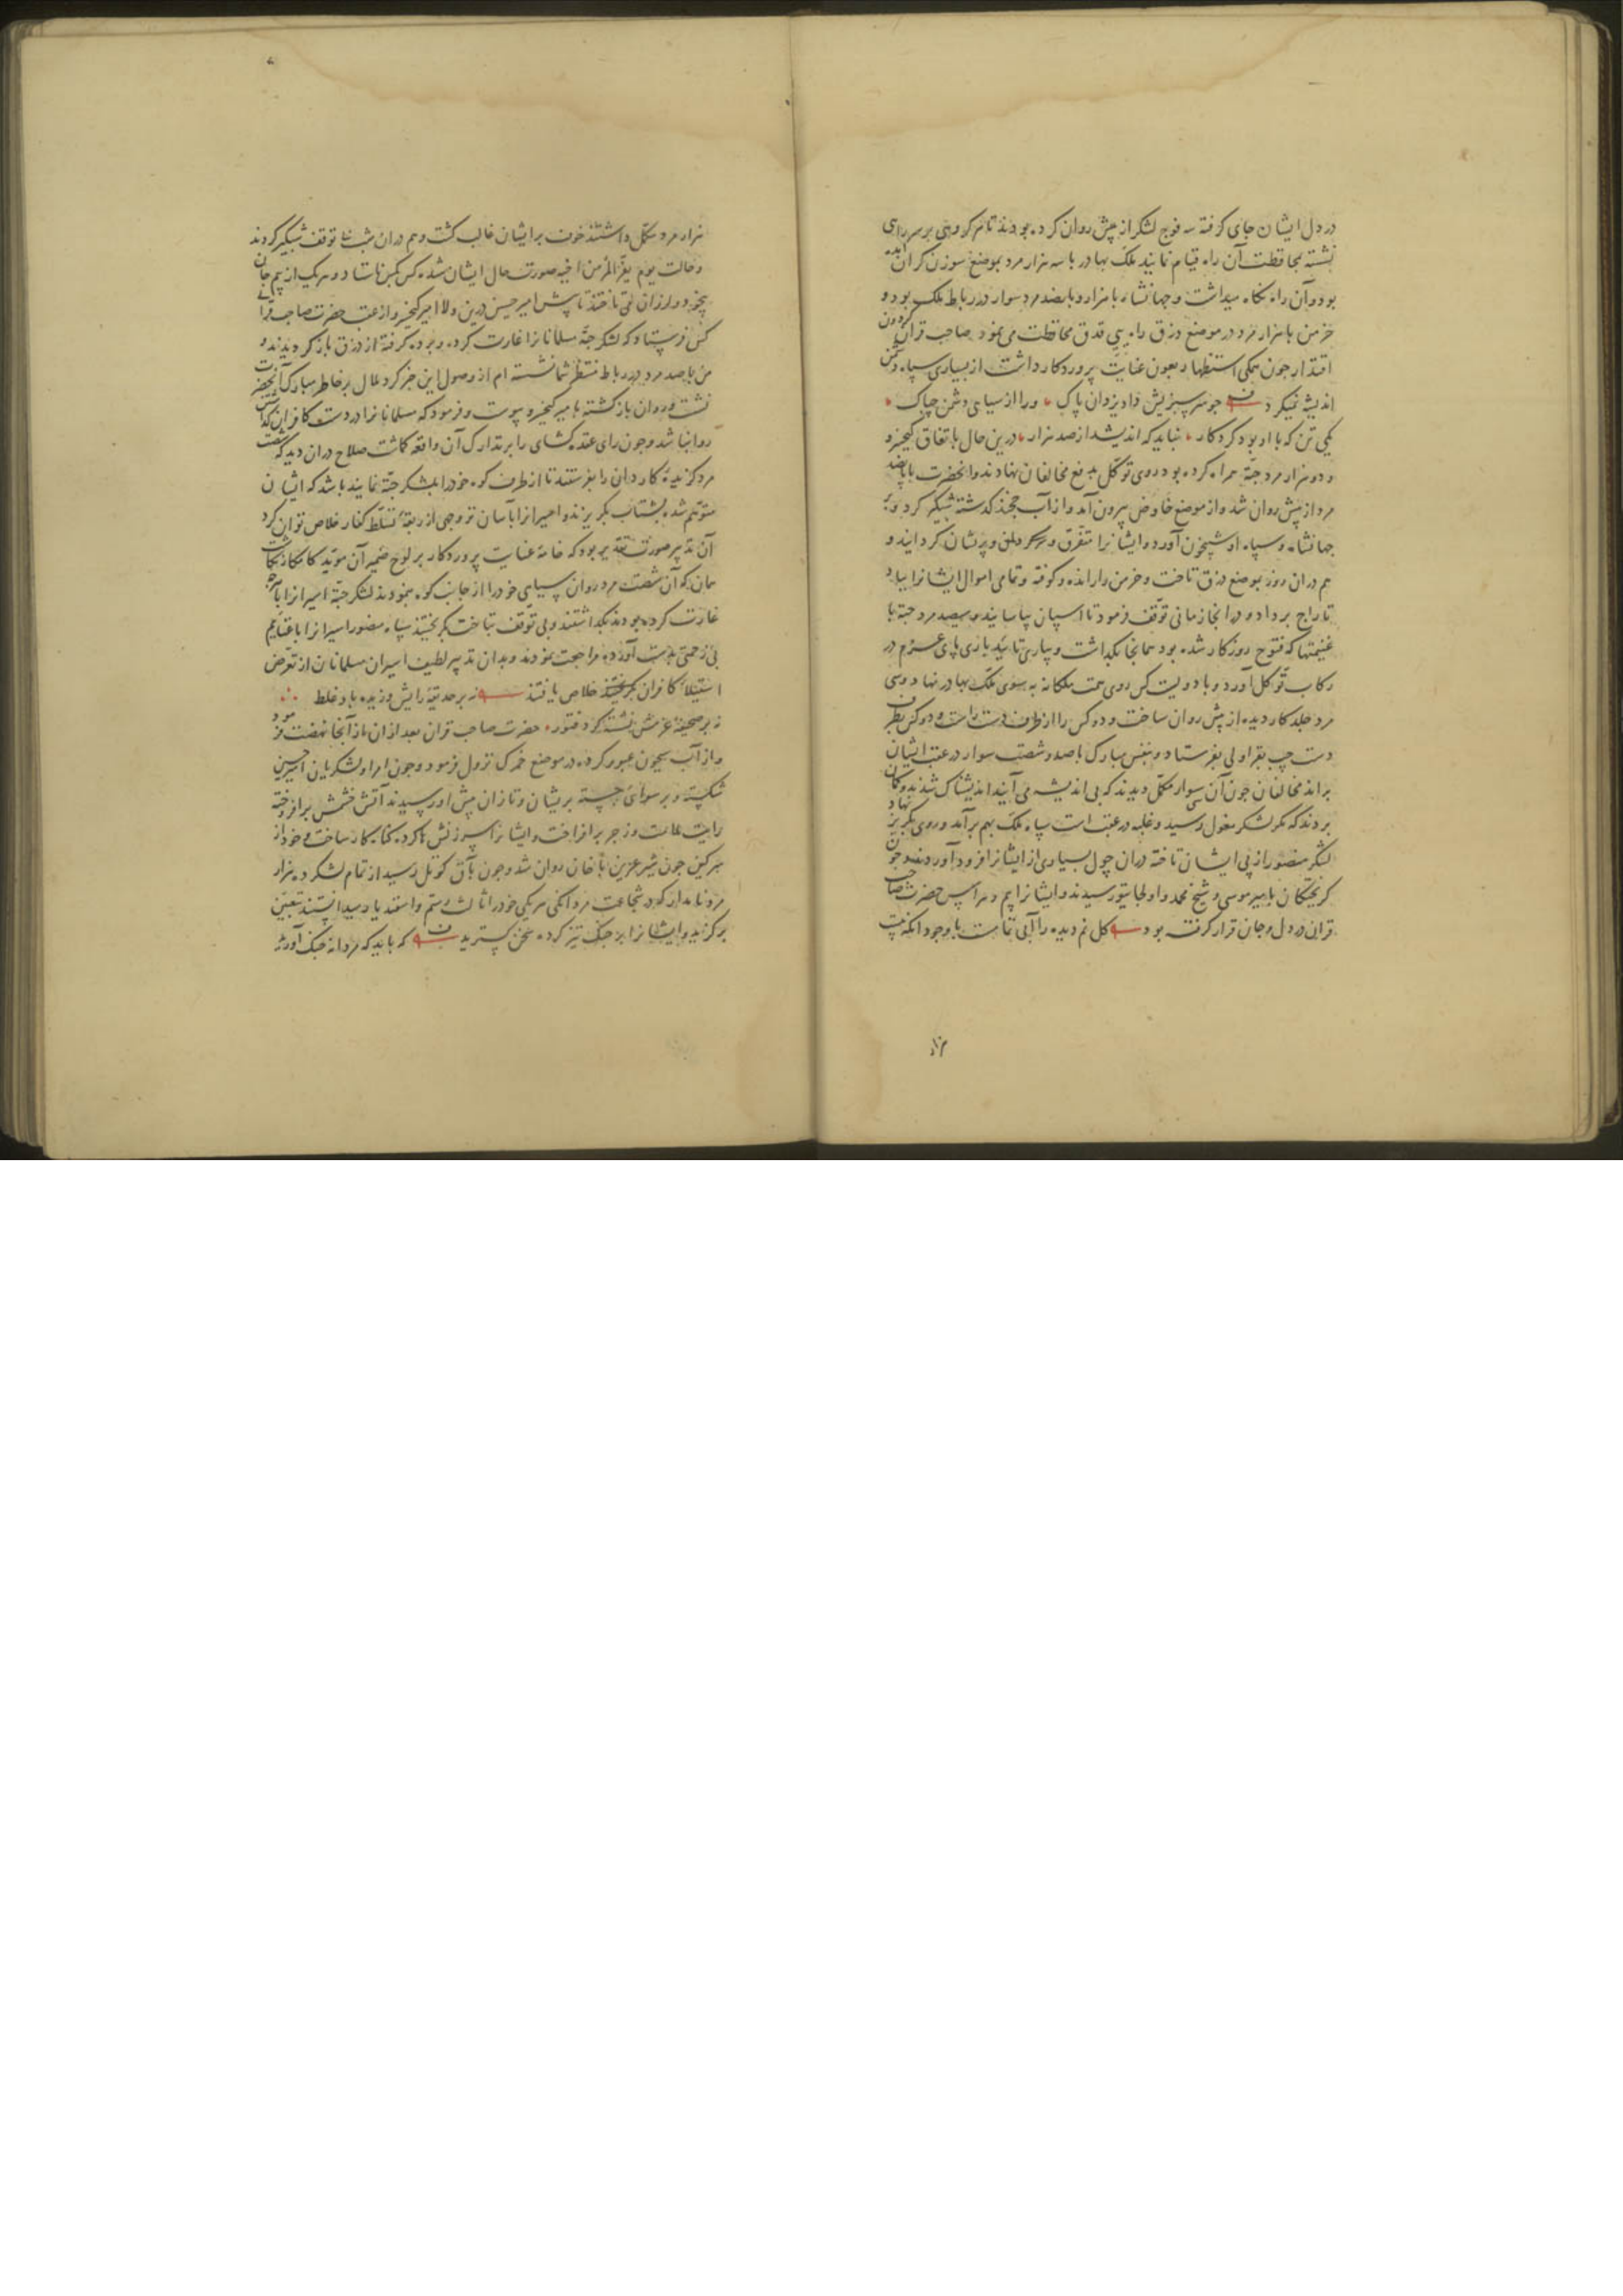 در دل ایشان جای کرفته سه فوج لشکر از پیش روان کرده بودند تا هر کروهی بر سر راهی
نشسته بمحافظت آن راه قیام نمایند ملک بهادر با سه هزار مرد بموضع سوزن کران آمده
بود و آن راه نکاه میداشت و جهانشاه با هزار و پانصد مرد سوار در رباط ملک بود و
خرمن با هزار مرد در موضع درزق راه پی قدق محافظت می نمود صاحب قران کردون
اقتدار چون همکی استظهار بعون عنایت پروردکار داشت از بسیاری سپاه دشمن
اندیشه نمیکرد جو سرسبزیش داد یزدان پاک ورا از سیاهی دشمن چه باک
یکی تن که با او بود کردکار نباید که اندیشد از صد هزار درین حال باتفاق کیخسرو
و دو هزار مرد جته همراه کرده بود روی توکل بدفع مخالفان نهادند و انحضرت با پانصد
مرد از پیش روان شد و از موضع خاوض بیرون آمد و از آب خجند کذشته شبکیر کرد و بر
جهانشاه و سپاه او شبیخون آورد و ایشانرا متفرق و پریشان کردانید و
هم در ان روز بموضع درزق تاخت و خرمن را رانده و کوفته و تمامی اموال ایشانرا بباد
تاراج برداد و در انجا زمانی توقف فرمود تا اسپان بیاسایند و سیصد مرد جته با
غنیمتها که فتوح روزکار شده بود همانجا بکذاشت و بیاری تایید باری پای عزم در
رکاب توکل آورد و با دویست کس روی همت ملکانه به سوی ملک بهادر نهاد و سی
مرد جلد کار دیده از پیش روان ساخت و ده کس را از طرف دست راست و ده کس بطرف
دست چپ بقراولی بفرستاد و بنفس مبارک با صد و شصت سوار در عقب ایشان
براند مخالفان چون آن سی سوار مکمل دیدند که بی اندیشه می آیند اندیشناک شدند و کمان
بردند که مکر لشکر مغول رسید و غلبه در عقب است سپاه ملک بهم برآمد و روی بکریز نهاد
لشکر منصور از پی ایشان تاخته دران چول بسیاری از ایشانرا فرود آوردند و چون
کریختکان بامیر موسی و شیخ محمد و اولجایتو رسیدند و ایشانرا بیم و هراس حضرت صاحب
قران در دل و جان قرار کرفته بود کل نم دیده را آبی تمامست با وجود آنکه بیست
هزار مرد مکمل داشتند خوف بر ایشان غالب کشت و هم دران شب بی توقف شبکیر کردند
و حالت یوم یفر المرء من اخیه صورت حال ایشان شده کس بکس نایستاد و هریک از بیم جان
بیخود و لرزان می تاختند تا پیش امیر حسین درین ولا امیر کیخسرو از عقب حضرت صاحب قرانی
کس فرستاد که لشکر جته مسلمانانرا غارت کرده و برده کرفته از درزق بازکردیدند و
من با صد مرد در رباط منتظر شما نشسته ام از وصول این خبر کرد ملال بر خاطر مبارک آنحضرت
نشست و روان بازکشته بامیر کیخسرو پیوست و فرمود که مسلمانانرا در دست کافران کذاشتن
روا نباشد و چون رای عقده کشای را بر تدارک آن واقعه کماشت صلاح دران دید که شصت
مرد کزیده کاردان را بفرستند تا از طرف کوه خود را بلشکر جته نمایند باشد که ایشان
متوهم شده بشتاب بکریزند و اسیرانرا بآسان تر وجهی از ربقه تسلط کفار خلاص توان کرد
آن تدبیر صورت تقدیر بود که خامه عنایت پروردکار بر لوح ضمیر آن موید کامکار نکاشت
همان که آن شصت مرد روان سیاهی خود را از جانب کوه بنمودند لشکر جته اسیرانرا با آنچه
غارت کرده بودند بکذاشتند و بی توقف بتاخت بکریختند سپاه منصور اسیرانرا با غنایم
بی زحمتی بدست آورده مراجعت نمودند و بدان تدبیر لطیف اسیران مسلمانان از تعرض
استیلای کافران خلاص یافتند نه بر حدیقه رایش وزیده باد غلط
نه بر صحیفه عزمش نشسته کرد فتور حضرت صاحب قران بعد از ان از آنجا نهضت فرمود
و از آب سیحون عبور کرده در موضع خمرک نزول فرمود و چون امرا و لشکریان امیر حسین
شکسته و بر سوائی جسته پریشان و تازان پیش او رسیدند آتش خشمش برافروخته
رایت ملامت و زجر برافراخت و ایشانرا سرزنش ها کرده کار ساخت و خود از
سر کین چون شیر عرین روان شد و چون بآق کوتل رسید از تمام لشکر ده هزار
مرد نامدار که در شجاعت و مردانکی هریکی خود را ثالث رستم و اسفندیار میدانستند تعیین
برکزید و ایشانرا بر جنک تیز کرده سخن کسترید که باید که مردانه جنک آورید